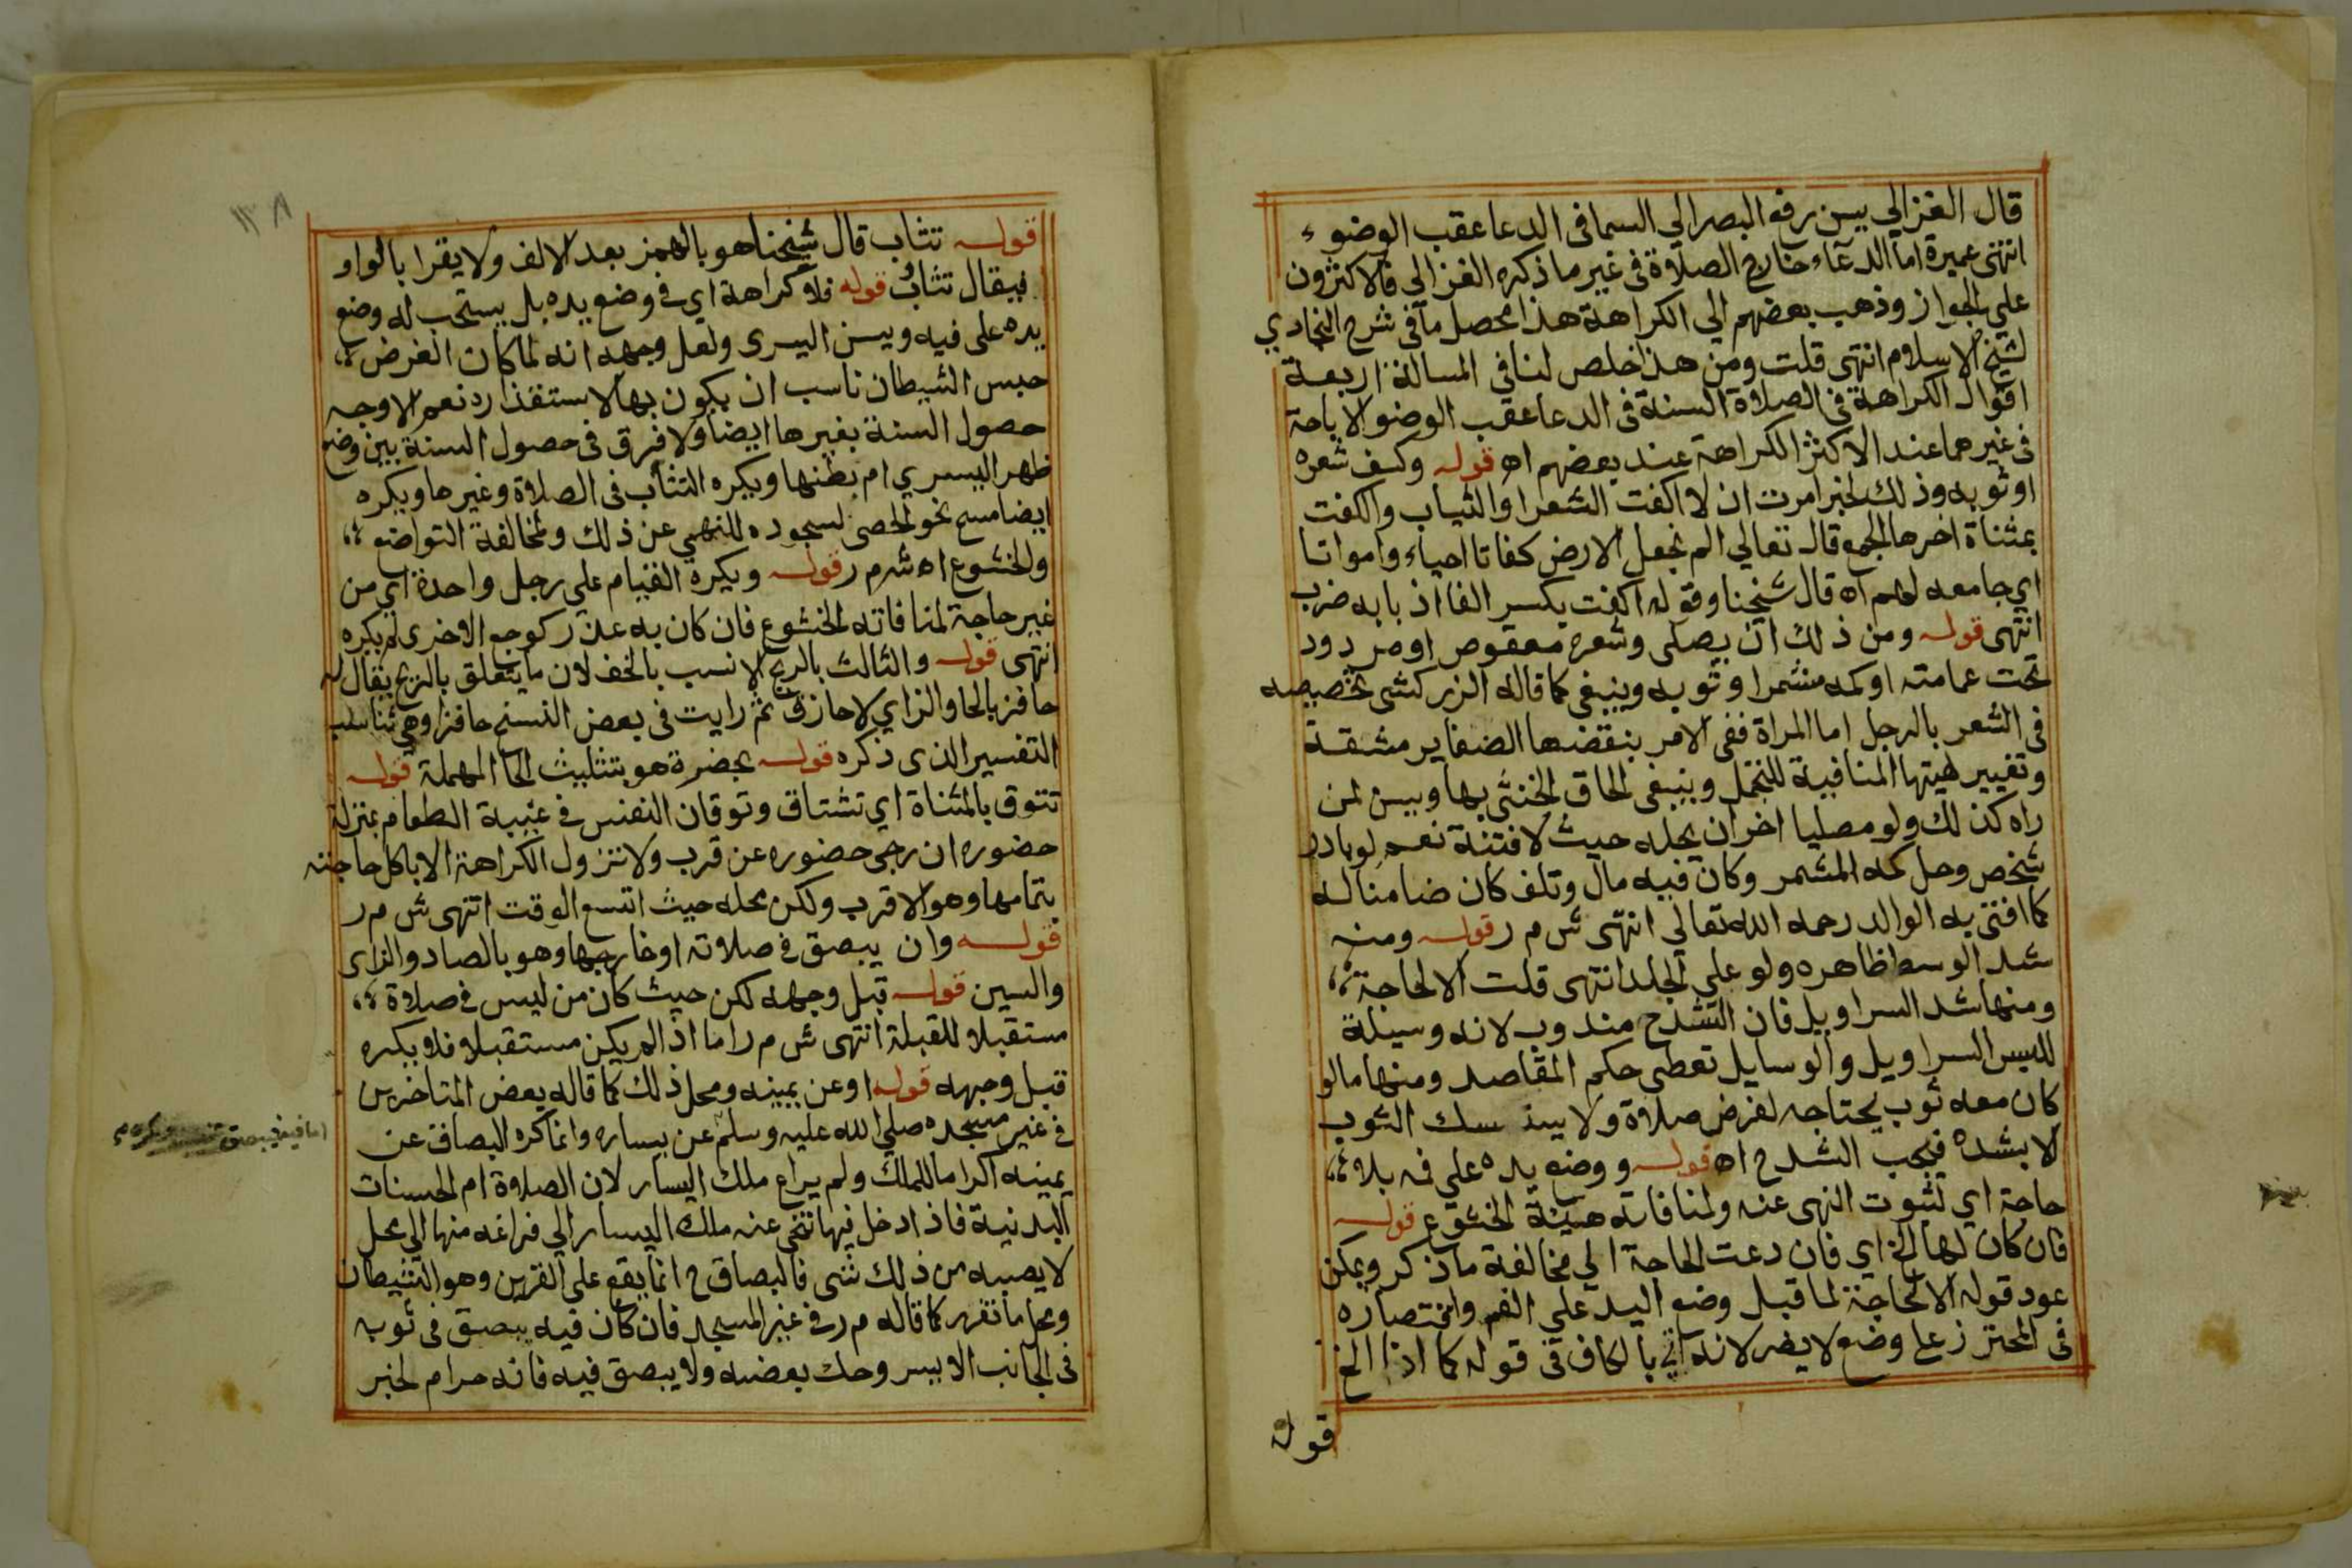 قال الغزالي يسن رفع البصر الي السما في الدعا عقب الوضوء
انتهي عميرة اما الدعاء خارج الصلاة في غير ما ذكره الغزالي فالاكثرون
علي الجواز وذهب بعضهم الي الكراهة هذا محصل ما في شرح البخاري
لشيخ الاسلام انتهى قلت ومن هذا خلص لنا في المسالة اربعة
اقوال الكراهة في الصلاة السنة في الدعا عقب الوضو الاباحة
في غيرهما عند الاكثر الكراهة عند بعضهم اه قوله وكف شعره
او ثوبه وذلك لخبر امرت ان لا اكفت الشعر او الثياب والكفت
بمثناة اخرها الجمع قال تعالي الم نجعل الارض كفاتا احياء وامواتا
اي جامعه لهم اه قال شيخنا وقوله اكفت بكسر الفا اذ بابه ضرب
انتهى قوله ومن ذلك ان يصلي وشعره معقوص او مردود
تحت عمامته او كمه مشمر او ثوبه وينبغي كما قاله الزركشي تخصيصه
في الشعر بالرجل اما المراة ففي الامر بنقضها الضفاير مشقة
وتغيير لهيتها المنافية للتجمل وينبغي الحاق الخنثي بها ويسن لمن
راه كذلك ولو مصليا اخر ان يحله حيث لا فتنة نعم لو بادر
شخص وحل كمه المشمر وكان فيه مال وتلف كان ضامنا له
كما افتى به الوالد رحمه الله تعالي انتهى ش م ر قوله ومنه
شد الوسط ظاهره ولو علي الجلد انتهى قلت الا لحاجة
ومنها شد السراويل فان الشد ح مندوب لانه وسيلة
للبس السراويل والوسايل تعطى حكم المقاصد ومنها ما لو
كان معه ثوب يحتاجه لفرض صلاة ولا يستمسك الثوب
الا بشده فيجب الشد ح اه قوله ووضع يده علي فمه بلا
حاجة اي لثبوت النهي عنه ولمنافاته هيئة الخشوع قوله
فان كان لها الخ اي فان دعت الحاجة الي مخالفة ما ذكر ويمكن
عود قوله الا لحاجة لما قبل وضع اليد علي الفم واختصاره
في المحترز علي وضع لا يضر لانه اتي بالكاف في قوله كما اذا الخ
قوله
١٣٨
قوله تثاب قال شيخنا هو بالهمز بعد الالف ولا يقرا بالواو
فيقال تثاوب قوله فلا كراهة اي في وضع يده بل يستحب له وضع
يده على فيه ويسن اليسرى ولعل وجهه انه لما كان الغرض
حبس الشيطان ناسب ان يكون بها لاستقذاره نعم الاوجه
حصول السنة بغيرها ايضا ولا فرق في حصول السنة بين وضع
ظهر اليسري ام بطنها ويكره التثاب في الصلاة وغيرها ويكره
ايضا مسح نحو الحصى لسجوده للنهي عن ذلك ولمخالفة التواضع
والخشوع اه ش م ر قوله ويكره القيام علي رجل واحدة اي من
غير حاجة لمنافاته الخشوع فان كان به عذر كوجع الاخرى لم يكره
انتهى قوله والثالث بالريح الانسب بالخف لان ما يتعلق بالريح يقال له
حافز بالحا والزاي لا حازق ثم رايت في بعض النسخ حافزا وهي تناسب
التفسير الذي ذكره قوله بحضرة هو بتثليث الحا المهملة قوله
تتوق بالمثناة اي تشتاق وتوقان النفس في غيبة الطعام بمنزلة
حضوره ان رجي حضوره عن قرب ولا تزول الكراهة الا باكل حاجته
بتمامها وهو الاقرب ولكن محله حيث اتسع الوقت انتهى ش م ر
قوله وان يبصق في صلاته او خارجها وهو بالصاد والزاى
والسين قوله قبل وجهه لكن حيث كان من ليس في صلاة
مستقبلا للقبلة انتهى ش م ر اما اذا لم يكن مستقبلا فلا يكره
قبل وجهه قوله او عن يمينه ومحل ذلك كما قاله بعض المتاخرين
في غير مسجده صلي الله عليه وسلم عن يساره وانما كره البصاق عن
يمينه اكراما للملك ولم يراع ملك اليسار لان الصلاة ام الحسنات
البدنية فاذا دخل فيها تنحى عنه ملك اليسار الي فراغه منها الي محل
لا يصيبه من ذلك شي فالبصاق ح انما يقع على القرين وهو الشيطان
ومحل ما تقرر كما قاله م ر في غير المسجد فان كان فيه يبصق في ثوبه
في الجانب الايسر وحك بعضه ولا يبصق فيه فانه حرام لخبر
اما فيه فيبصق